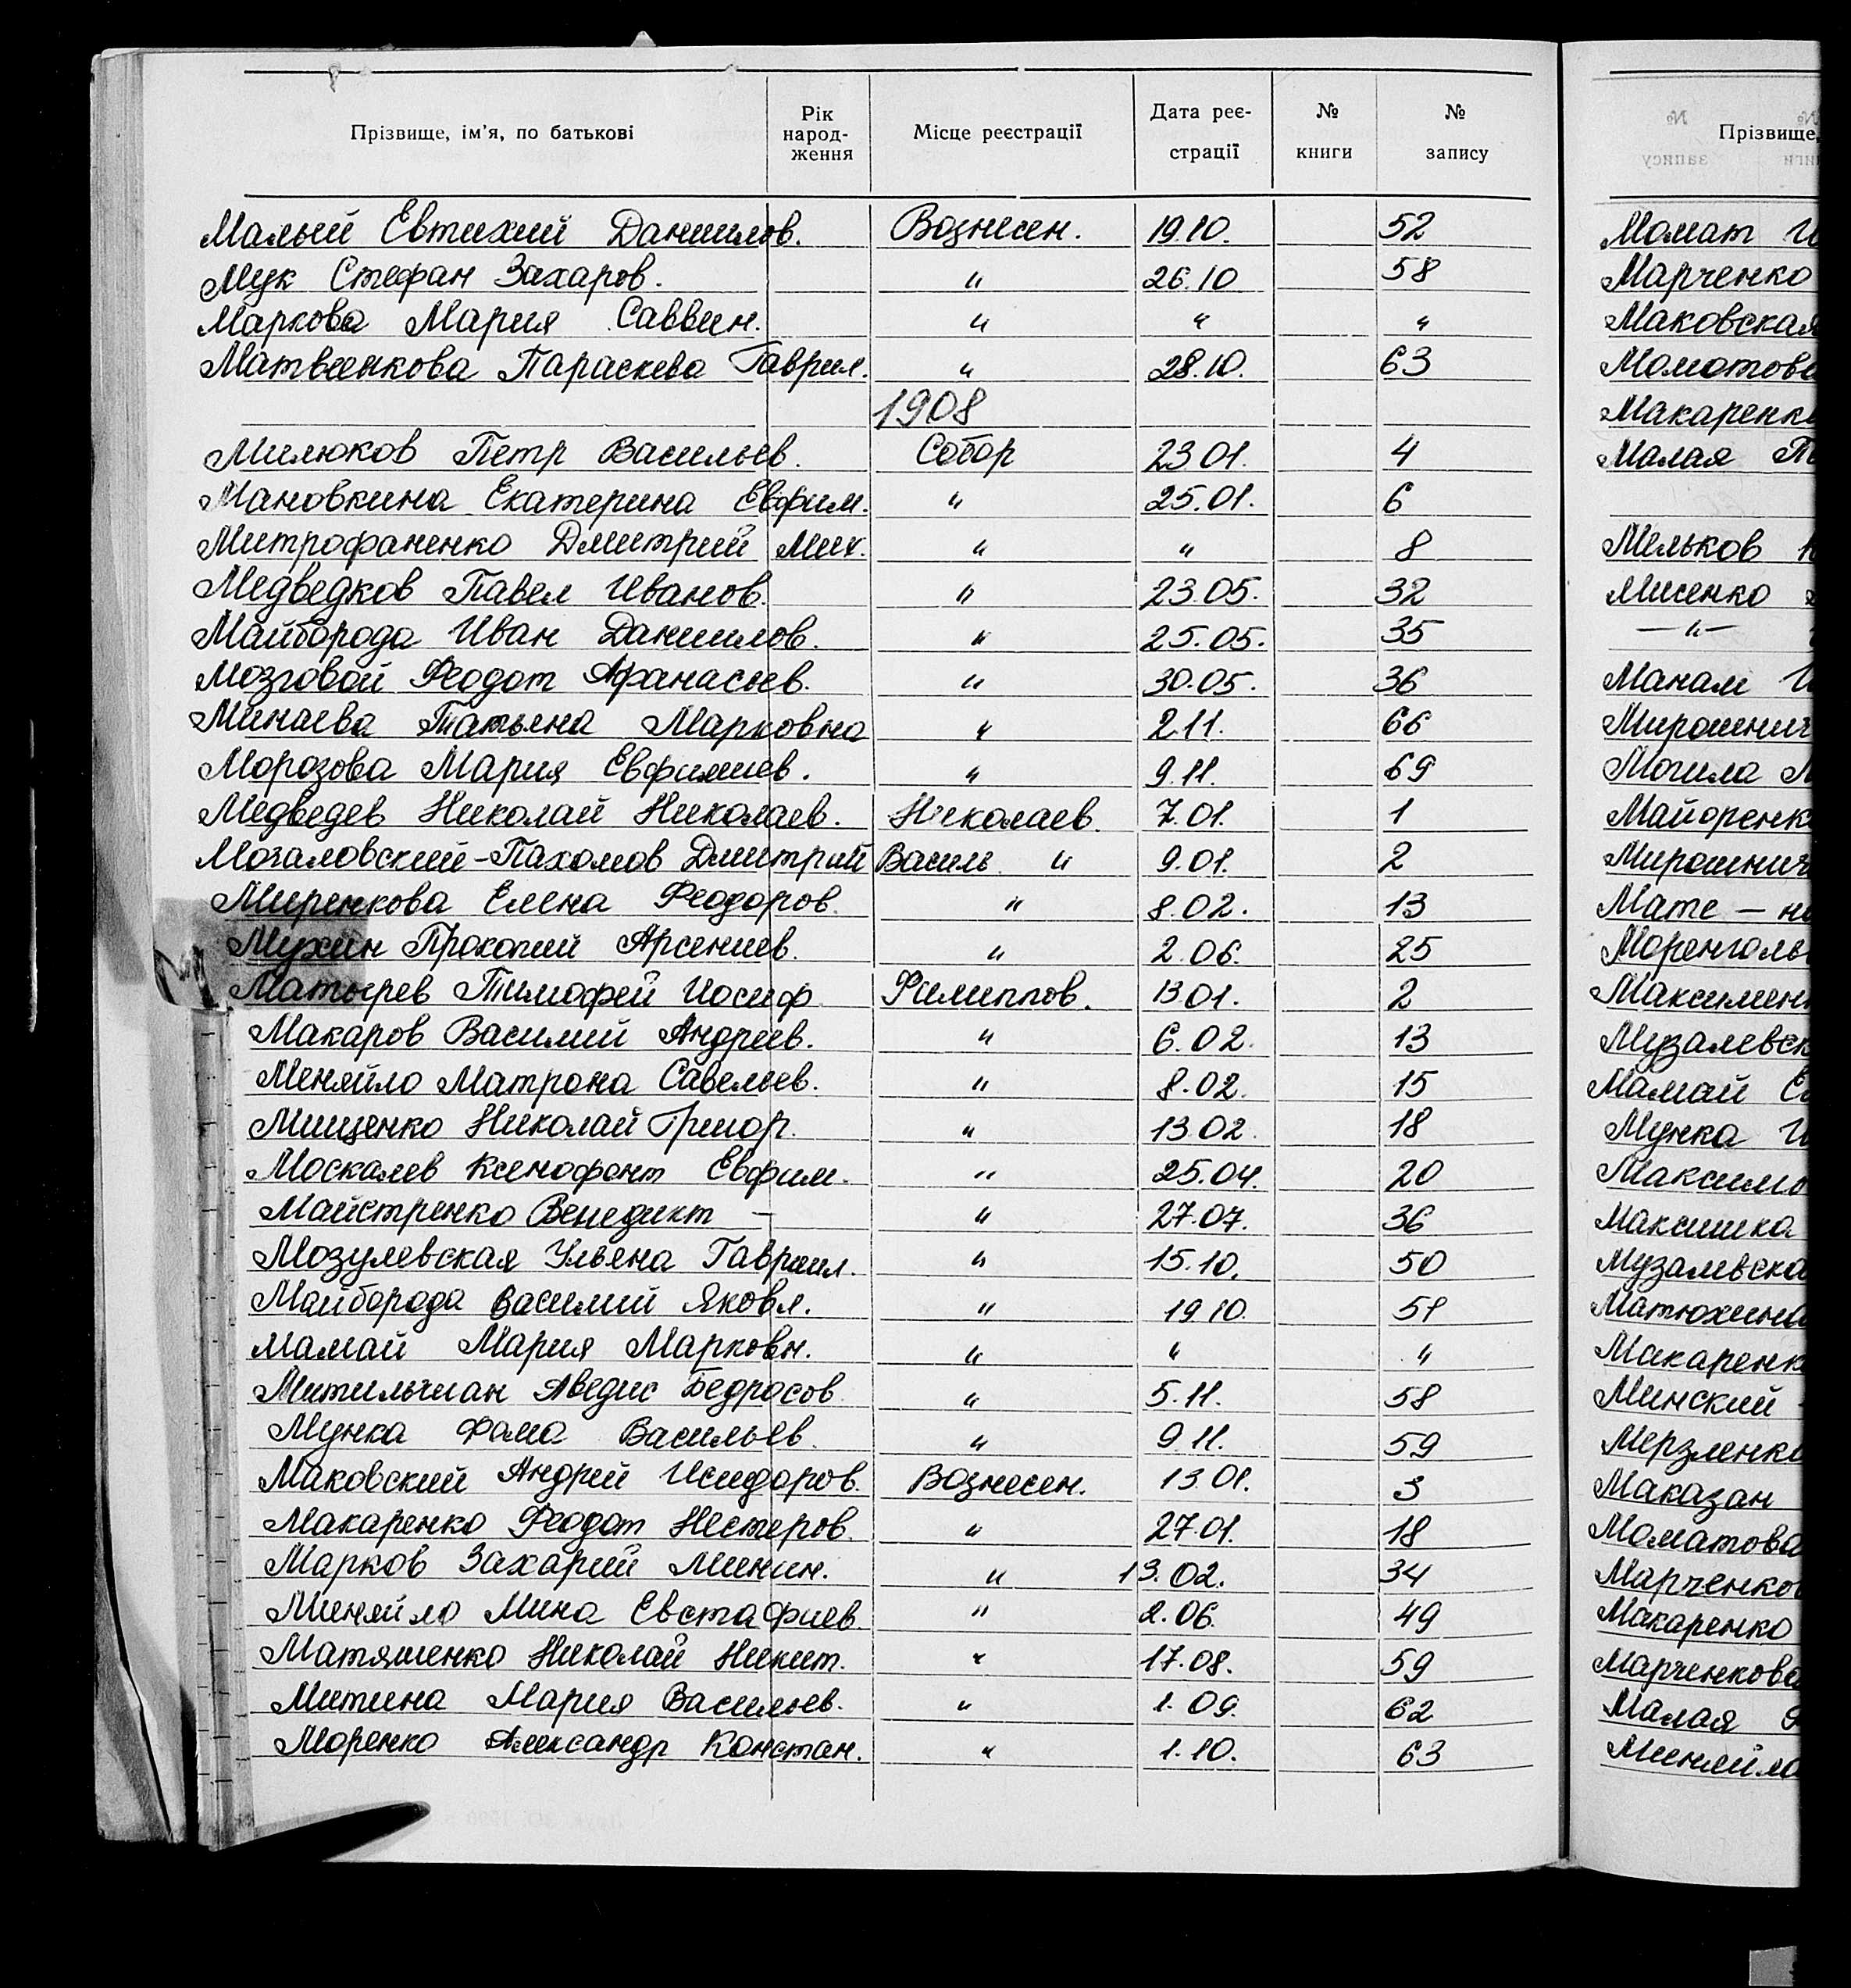 Прізвище, ім'я, по батькові Рік народ-ження Місце реєстрації Дата реє-страції № книги № запису
Малый Евтихий Даниилов. Вознесен. 19.10. 52
Мук Стефан Захаров. " 26.10 58
Маркова Мария Саввин. " " "
Матвеенкова Параскева Гаврил. " 28.10. 63
1908
Милюков Петр Васильев. Собор 23 01. 4
Мановкина Екатерина Евфим. " 25.01. 6
Митрофаненко Дмитрий Мих. " " 8
Медведков Павел Иванов. " 23.05. 32
Майборода Иван Даниилов. " 25.05. 35
Мозговой Феодот Афанасьев. " 30.05. 36
Минаева Татьяна Марковна " 2.11. 66
Морозова Мария Евфимиев. " 9.11. 69
Медведев Николай Николаев. Николаев. 7.01. 1
Могаловский-Пахомов Дмитрий Василь " 9.01. 2
Миренкова Елена Феодоров. " 8.02. 13
Мухин Прокопий Арсениев. " 2.06. 25
Матырев Тимофей Иосиф Филиппов. 13.01. 2
Макаров Василий Андреев. " 6.02. 13
Меняйло Матрона Савельев. " 8.02. 15
Мищенко Николай Григор. " 13.02. 18
Москалев Ксенофонт Евфим. " 25.04. 20
Майстренко Венедикт – " 27.07. 36
Мозулевская Ульяна Гавриил. " 15.10. 50
Майборода Василий Яковл. " 19 10. 51
Мамай Мария Марковн. " " "
Митильчиан Аведис Бедросов. " 5.11. 58
Мунка Фома Васильев. " 9.11. 59
Маковский Андрей Исидоров. Вознесен. 13.01. 3
Макаренко Феодот Нестеров. " 27.01. 18
Марков Захарий Минин. " 13.02. 34
Миняйло Мина Евстафиев. " 2.06. 49
Матяшенко Николай Никит. " 17.08. 59
Митина Мария Васильев. " 1.09. 62
Моренко Александр Констан. " 1.10. 63
Прізвище,
Момат И
Марченко
Маковская
Момотова
Макаренко
Малая
Мельков
Мисенко
—"—
Манам
Мирошнич
Могила
Майоренк
Мирошнич
Матс — не
Моренголь
Максимен
Музалевск
Мамай
Мунка И
Максимо
Максимка
Музалевска
Матюхина
Макаренк
Минский
Мерзленко
Маказан
Моматова
Марченков
Макаренко
Марченкова
Малая
Миняйло